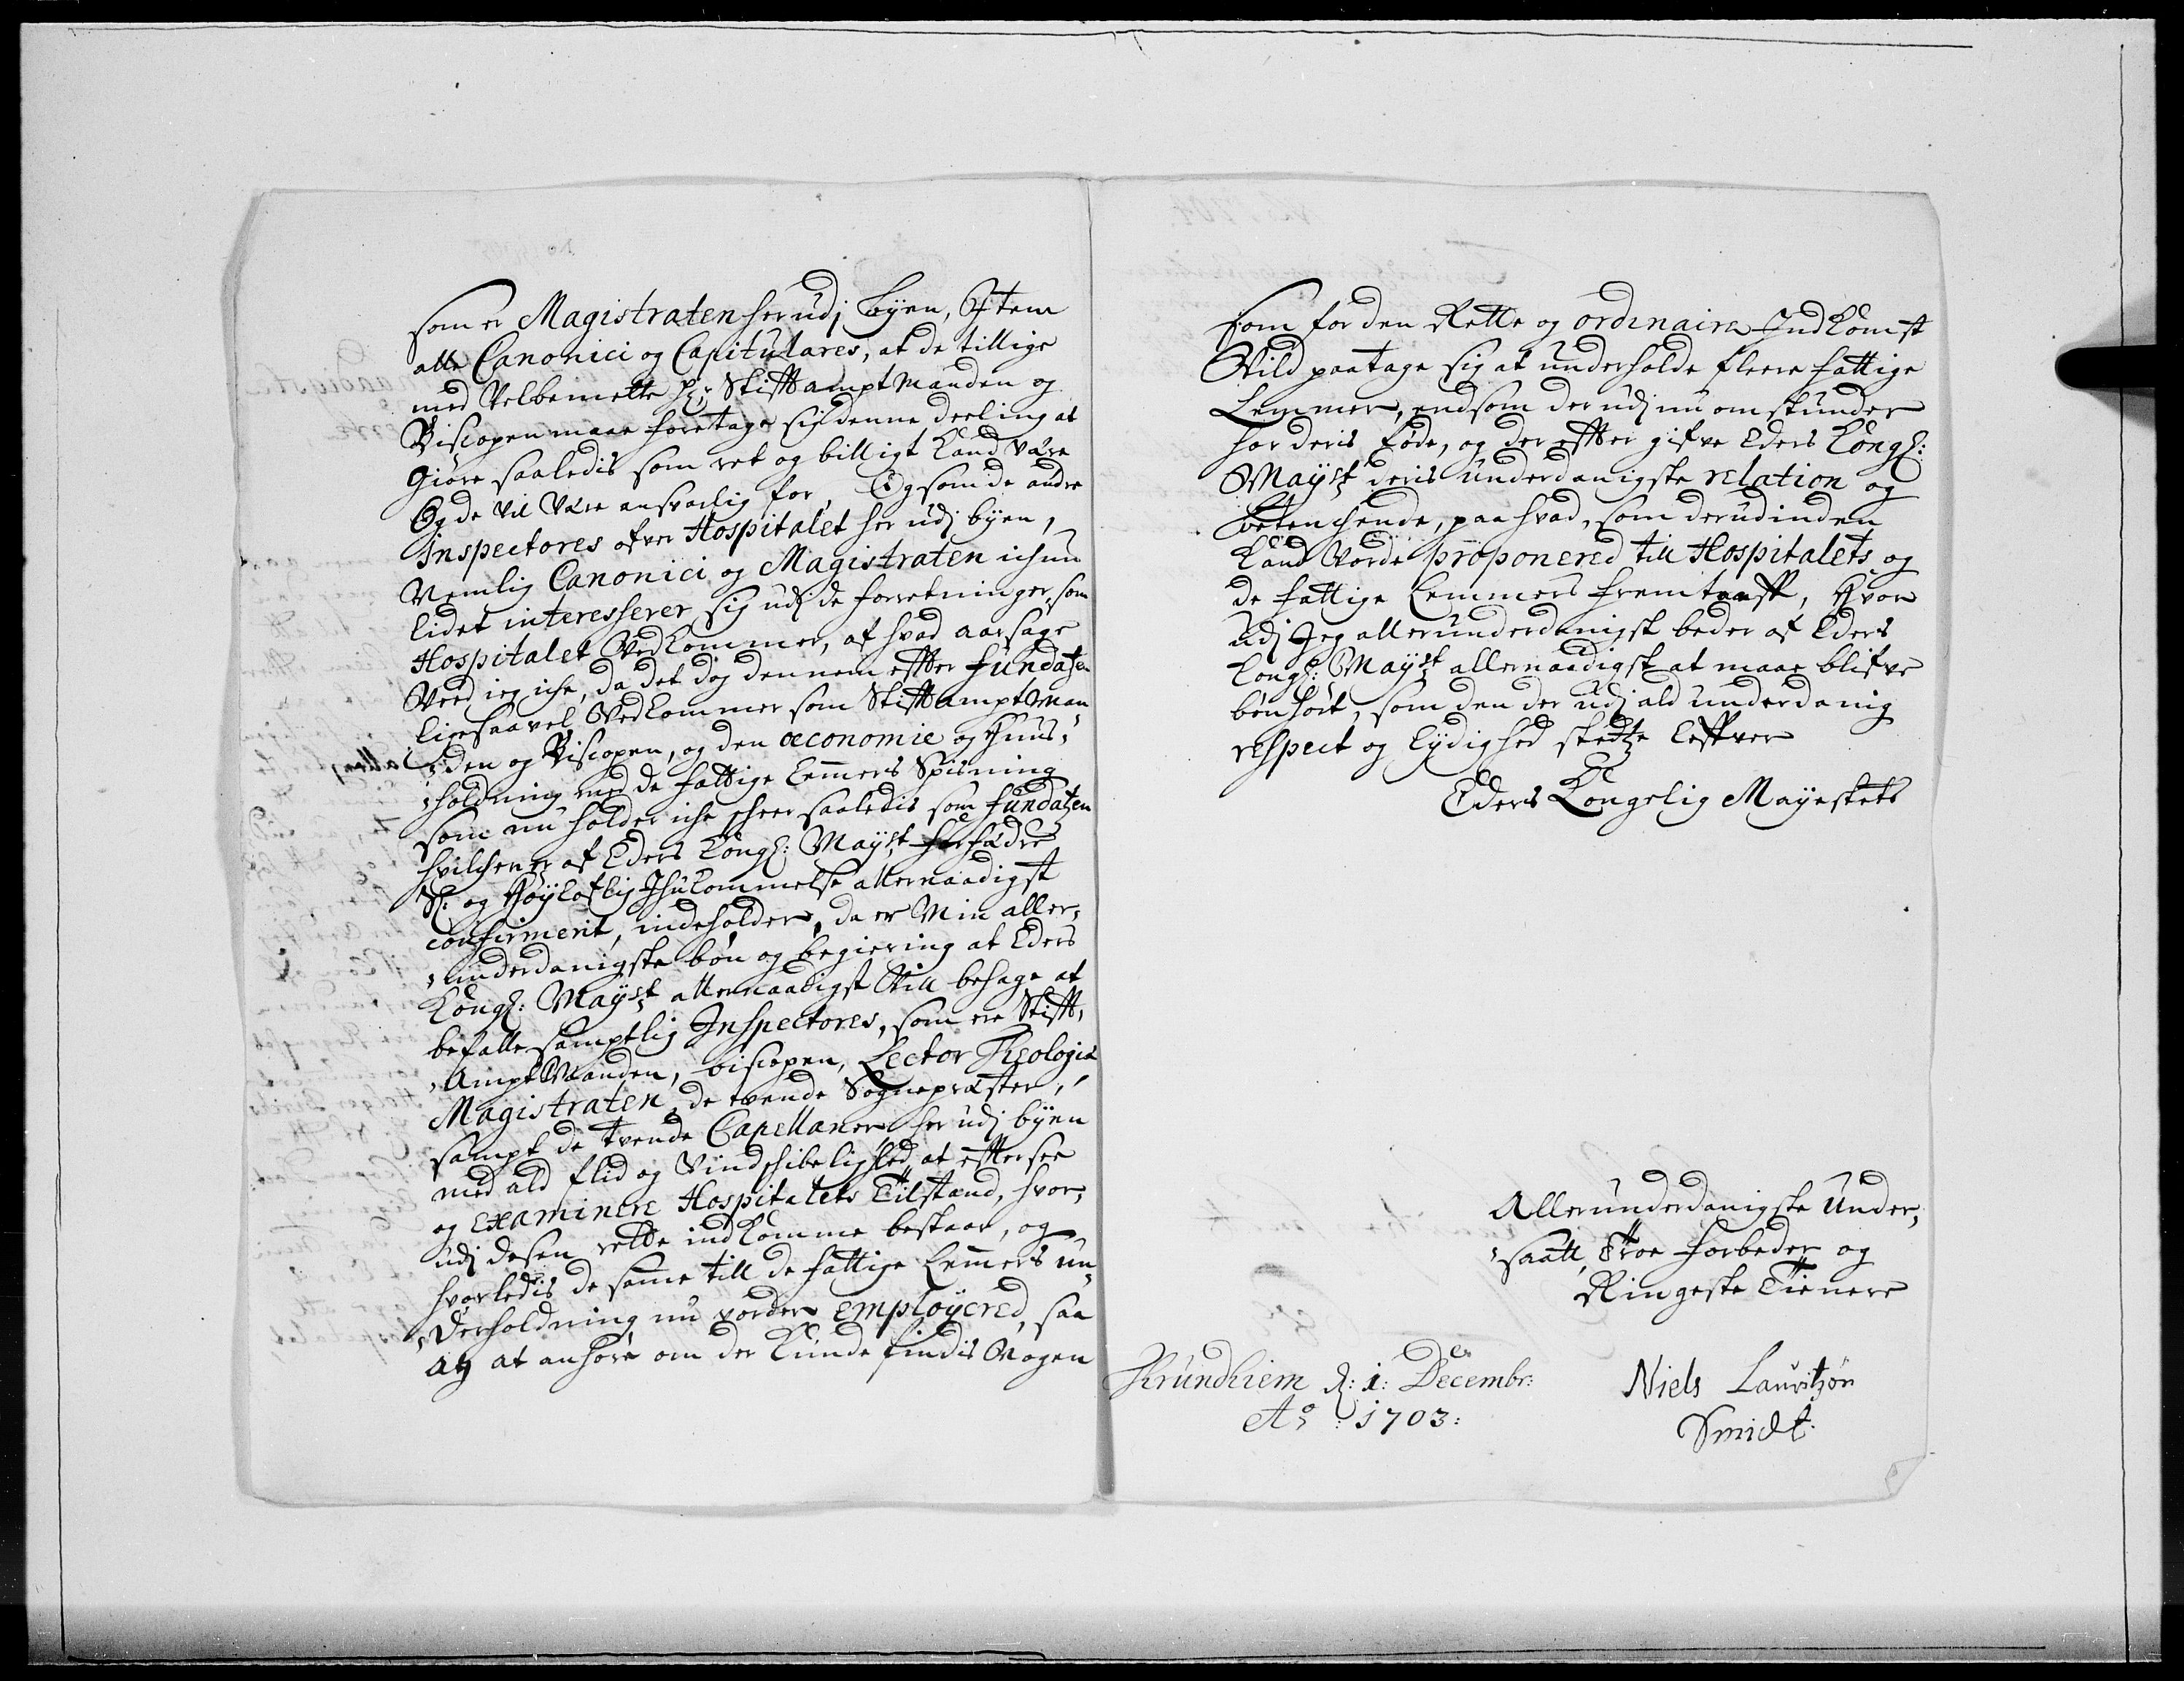 som er Magistraten her udj byen, Item
alle Canonici og Capitulares, at de tillige
med Velbemelte Hr: StifftamptManden og
Biscopen maae foretage sig denne deeling at
giøre saaledis som ret og billigt kand være
Og de vil være ansvarlig for, Og som de andre
Inspectores ofver Hospitalet her udj byen,
Nemlig Canonici og Magistraten ichun
lidet interesserer sig udj de forretninger, som
Hospitalet Vedkommer, af hvad aarsage
Veed ieg iche, da det dog dennem effter fundatzen
ligesaavel Vedkommer som StifftamptMan„
„den og Biscopen, og den œconomie og Huus„
„holdning med de fattige Lemmers Spisning
som nu holder iche scheer saaledis som fundatzen
hvilchen er af Eders Kongl: Mayst forfædre
Sl: og Høyloflig Ihukommelse allernaadigst
confirmerit, indeholder, da er Min aller„
„underdanigste bøn og begiering at Eders
Kongl: Mayst allernaadigst Vill behage at
befalle samptlig Inspectores, som ere Stifft„
„AmptManden, biscopen, Lector Theologiæ
Magistraten, de tvende Sognepræster,
sampt de tvende Capellaner her udj byen
med ald flid og Vindschibelighed at efftersee
og examinere Hospitalets Tilstand, hvor„
udj desen rette indkomme bestaar, og
hvorledis de samme till de fattige Lemmers un„
„derholdning nu vorder employered, saa
at anhøre om der kunde findis Nogen
som for den Rette og ordinaire Indkomst
Vild paatage sig at underholde fleere fattige
Lemmer, end som der udj nu omstunder
har deris føde, og der effter gifve Eders Kongl:
Mayst deris underdanigste relation og
betenchende, paa hvad, som derudinden
kand Vorde proponered till Hospitalets og
de fattige Lemmers fremtarff, Hvor
udj Jeg allerunderdanigst beder af Eders
Kongl: Mayst allernaadigst at maae blifve
bønhørt, som den der udj ald underdanig
respect og lydighed stedtze lefver
Eders Kongelig Mayestets
Allerunderdanigste Under„
„saatt, Troe forbeder og
Ringeste Tienere
Thrundhiem d: 1: Decembr:
Ao: 1703:
Niels Lauritzøn
Smidt: